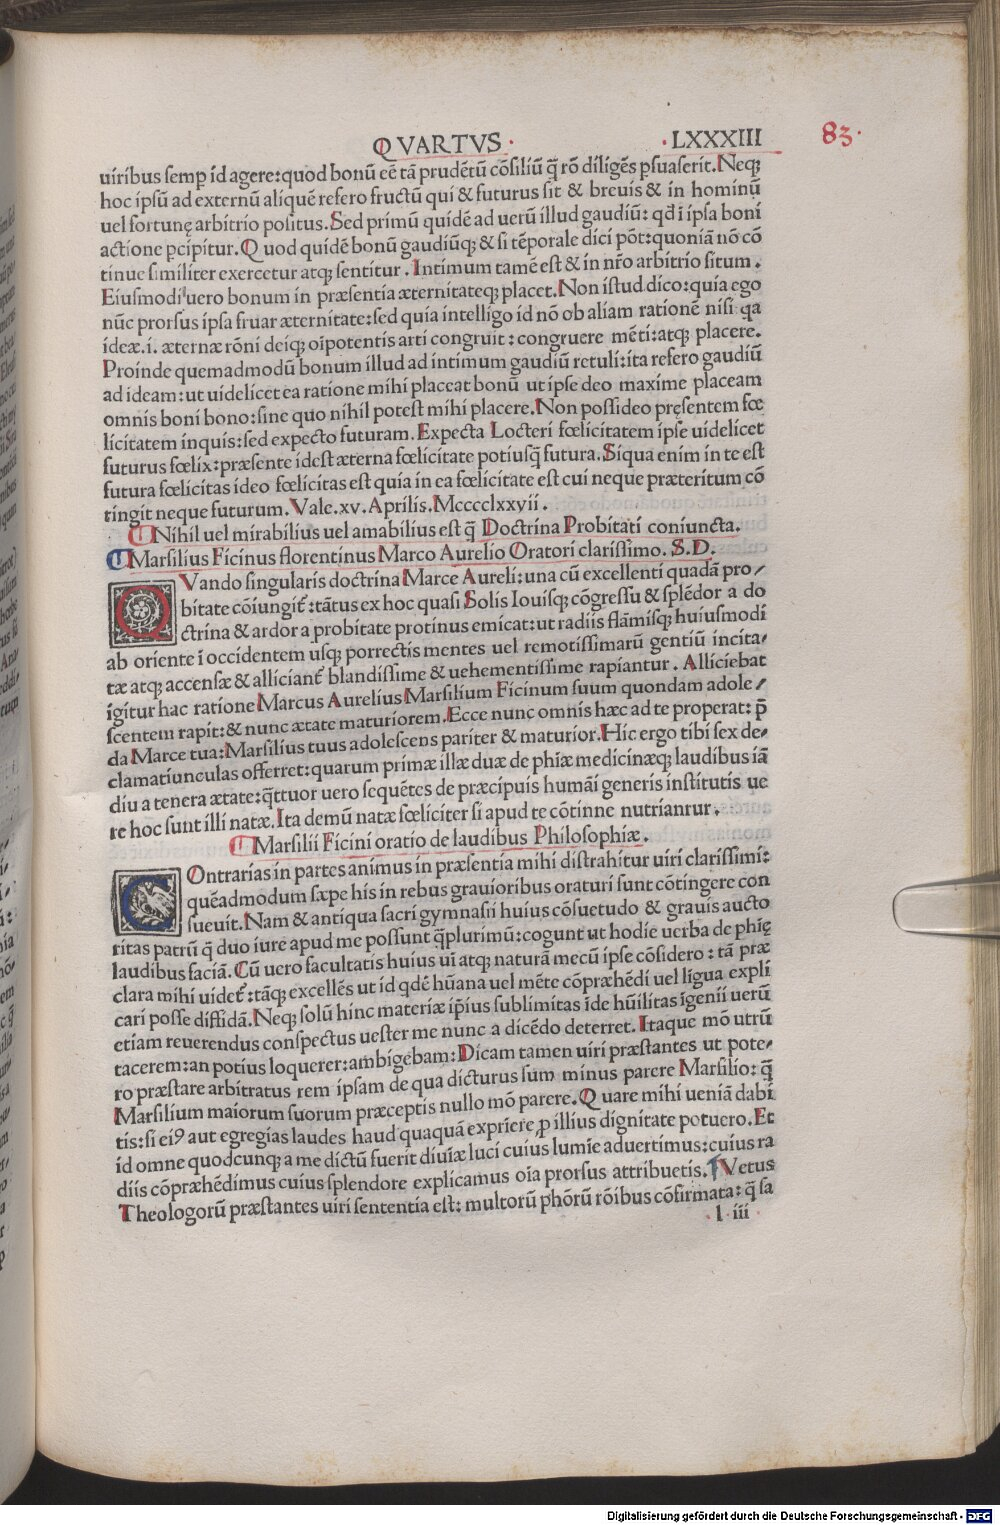 QVARTVS. .LXXXIII 83.
uiribus semp id agere:quod bonũ eẽ tã prudẽtũ cõsiliũ q̃ rõ diligẽs psuaserit.Neq;
hoc ipsũ ad externũ aliquẽ refero fructũ qui & futurus sit & breuis & in hominũ
uel fortunę arbitrio positus.Sed primũ quidẽ ad uerũ illud gaudiũ: qđ ĩ ipsa boni
actione pcipitur.Quod quidẽ bonũ gaudiũq; & si tẽporale dici põt:quoniã nõ cõ
tinue similiter exercetur atq; sentitur.Intimum tamẽ est & in nr̃o arbitrio situm.
Eiusmodi uero bonum in præsentia æternitateq; placet.Non istud dico:quia ego
nũc prorsus ipsa fruar æternitate:sed quia intelligo id nõ ob aliam rationẽ nisi qa
ideæ.i. æternæ rõni deiq; oipotentis arti congruit:congruere mẽti:atq; placere.
Proinde quemadmodũ bonum illud ad intimum gaudiũ retuli:ita refero gaudiũ
ad ideam:ut uidelicet ea ratione mihi placeat bonũ ut ipse deo maxime placeam
omnis boni bono:sine quo nihil potest mihi placere.Non possideo pręsentem fœ
licitatem inquis:sed expecto futuram.Expecta Locteri fœlicitatem ipse uidelicet
futurus fœlix:præsente idest æterna fœlicitate potiusq̃ futura.Siqua enim in te est
futura fœlicitas ideo fœlicitas est quia in ea fœlicitate est cui neque præteritum cõ
tingit neque futurum.Vale.xv.Aprilis.Mcccclxxvii.
Nihil uel mirabilius uel amabilius est q̃ Doctrina Probitati coniuncta.
Marsilius Ficinus florentinus Marco Aurelio Oratori clarissimo. S.D.
QVando singularis doctrina Marce Aureli:una cũ excellenti quadã pro/
bitate cõiungit̃:tãtus ex hoc quasi Solis Iouisq; cõgressu & splẽdor a do
ctrina & ardor a probitate protinus emicat:ut radiis flãmisq; huiusmodi
ab oriente ĩ occidentem usq; porrectis mentes uel remotissimarũ gentiũ incita/
tæ atq; accensæ & alliciant̃ blandissime & uehementissime rapiantur.Alliciebat
igitur hac ratione Marcus Aurelius Marsilium Ficinum suum quondam adole/
scentem rapit:& nunc ætate maturiorem.Ecce nunc omnis hæc ad te properat:p̃
da Marce tua:Marsilius tuus adolescens pariter & maturior.Hic ergo tibi sex de/
clamatiunculas offerret:quarum primæ illæ duæ de phiæ medicinæq; laudibus iã
diu a tenera ætate:q̃ttuor uero sequẽtes de præcipuis humãi generis institutis ue
re hoc sunt illi natæ.Ita demũ natæ fœliciter si apud te cõtinne nutrianrur.
Marsilii Ficini oratio de laudibus Philosophiæ.
COntrarias in partes animus in præsentia mihi distrahitur uiri clarissimi:
quẽadmodum sæpe his in rebus grauioribus oraturi sunt cõtingere con
sueuit.Nam & antiqua sacri gymnasii huius cõsuetudo & grauis aucto
ritas patrũ q̃ duo iure apud me possunt q̃plurimũ:cogunt ut hodie uerba de phię
laudibus faciã.Cũ uero facultatis huius uĩ atq; naturã mecũ ipse cõsidero:tã præ
clara mihi uidet̃:tãq; excellẽs ut id qdẽ hũana uel mẽte cõpræhẽdi uel lĩgua expli
cari posse diffidã.Neq; solũ hinc materiæ ip̃ius sublimitas ĩde hũilitas ĩgenii uerũ
etiam reuerendus conspectus uester me nunc a dicẽdo deterret.Itaque mõ utrũ
tacerem:an potius loquerer:ambigebam:Dicam tamen uiri præstantes ut pote/
ro præstare arbitratus rem ipsam de qua dicturus sum minus parere Marsilio:q̃
Marsilium maiorum suorum præceptis nullo mõ parere.Quare mihi ueniã dabi
tis:si eiꝰ aut egregias laudes haud quaquã expriere ꝓ illius dignitate potuero.Et
id omne quodcunq; a me dictũ fuerit diuiæ luci cuius lumie aduertimus:cuius ra
diis cõpræhẽdimus cuius splendore explicamus oia prorsus attribuetis.Vetus
Theologorũ præstantes uiri sententia est:multorũ phõrũ rõibus cõfirmata:q̃ sa
l iii
Digitalisierung gefördert durch die Deutsche Forschungsgemeinschaft - DFG